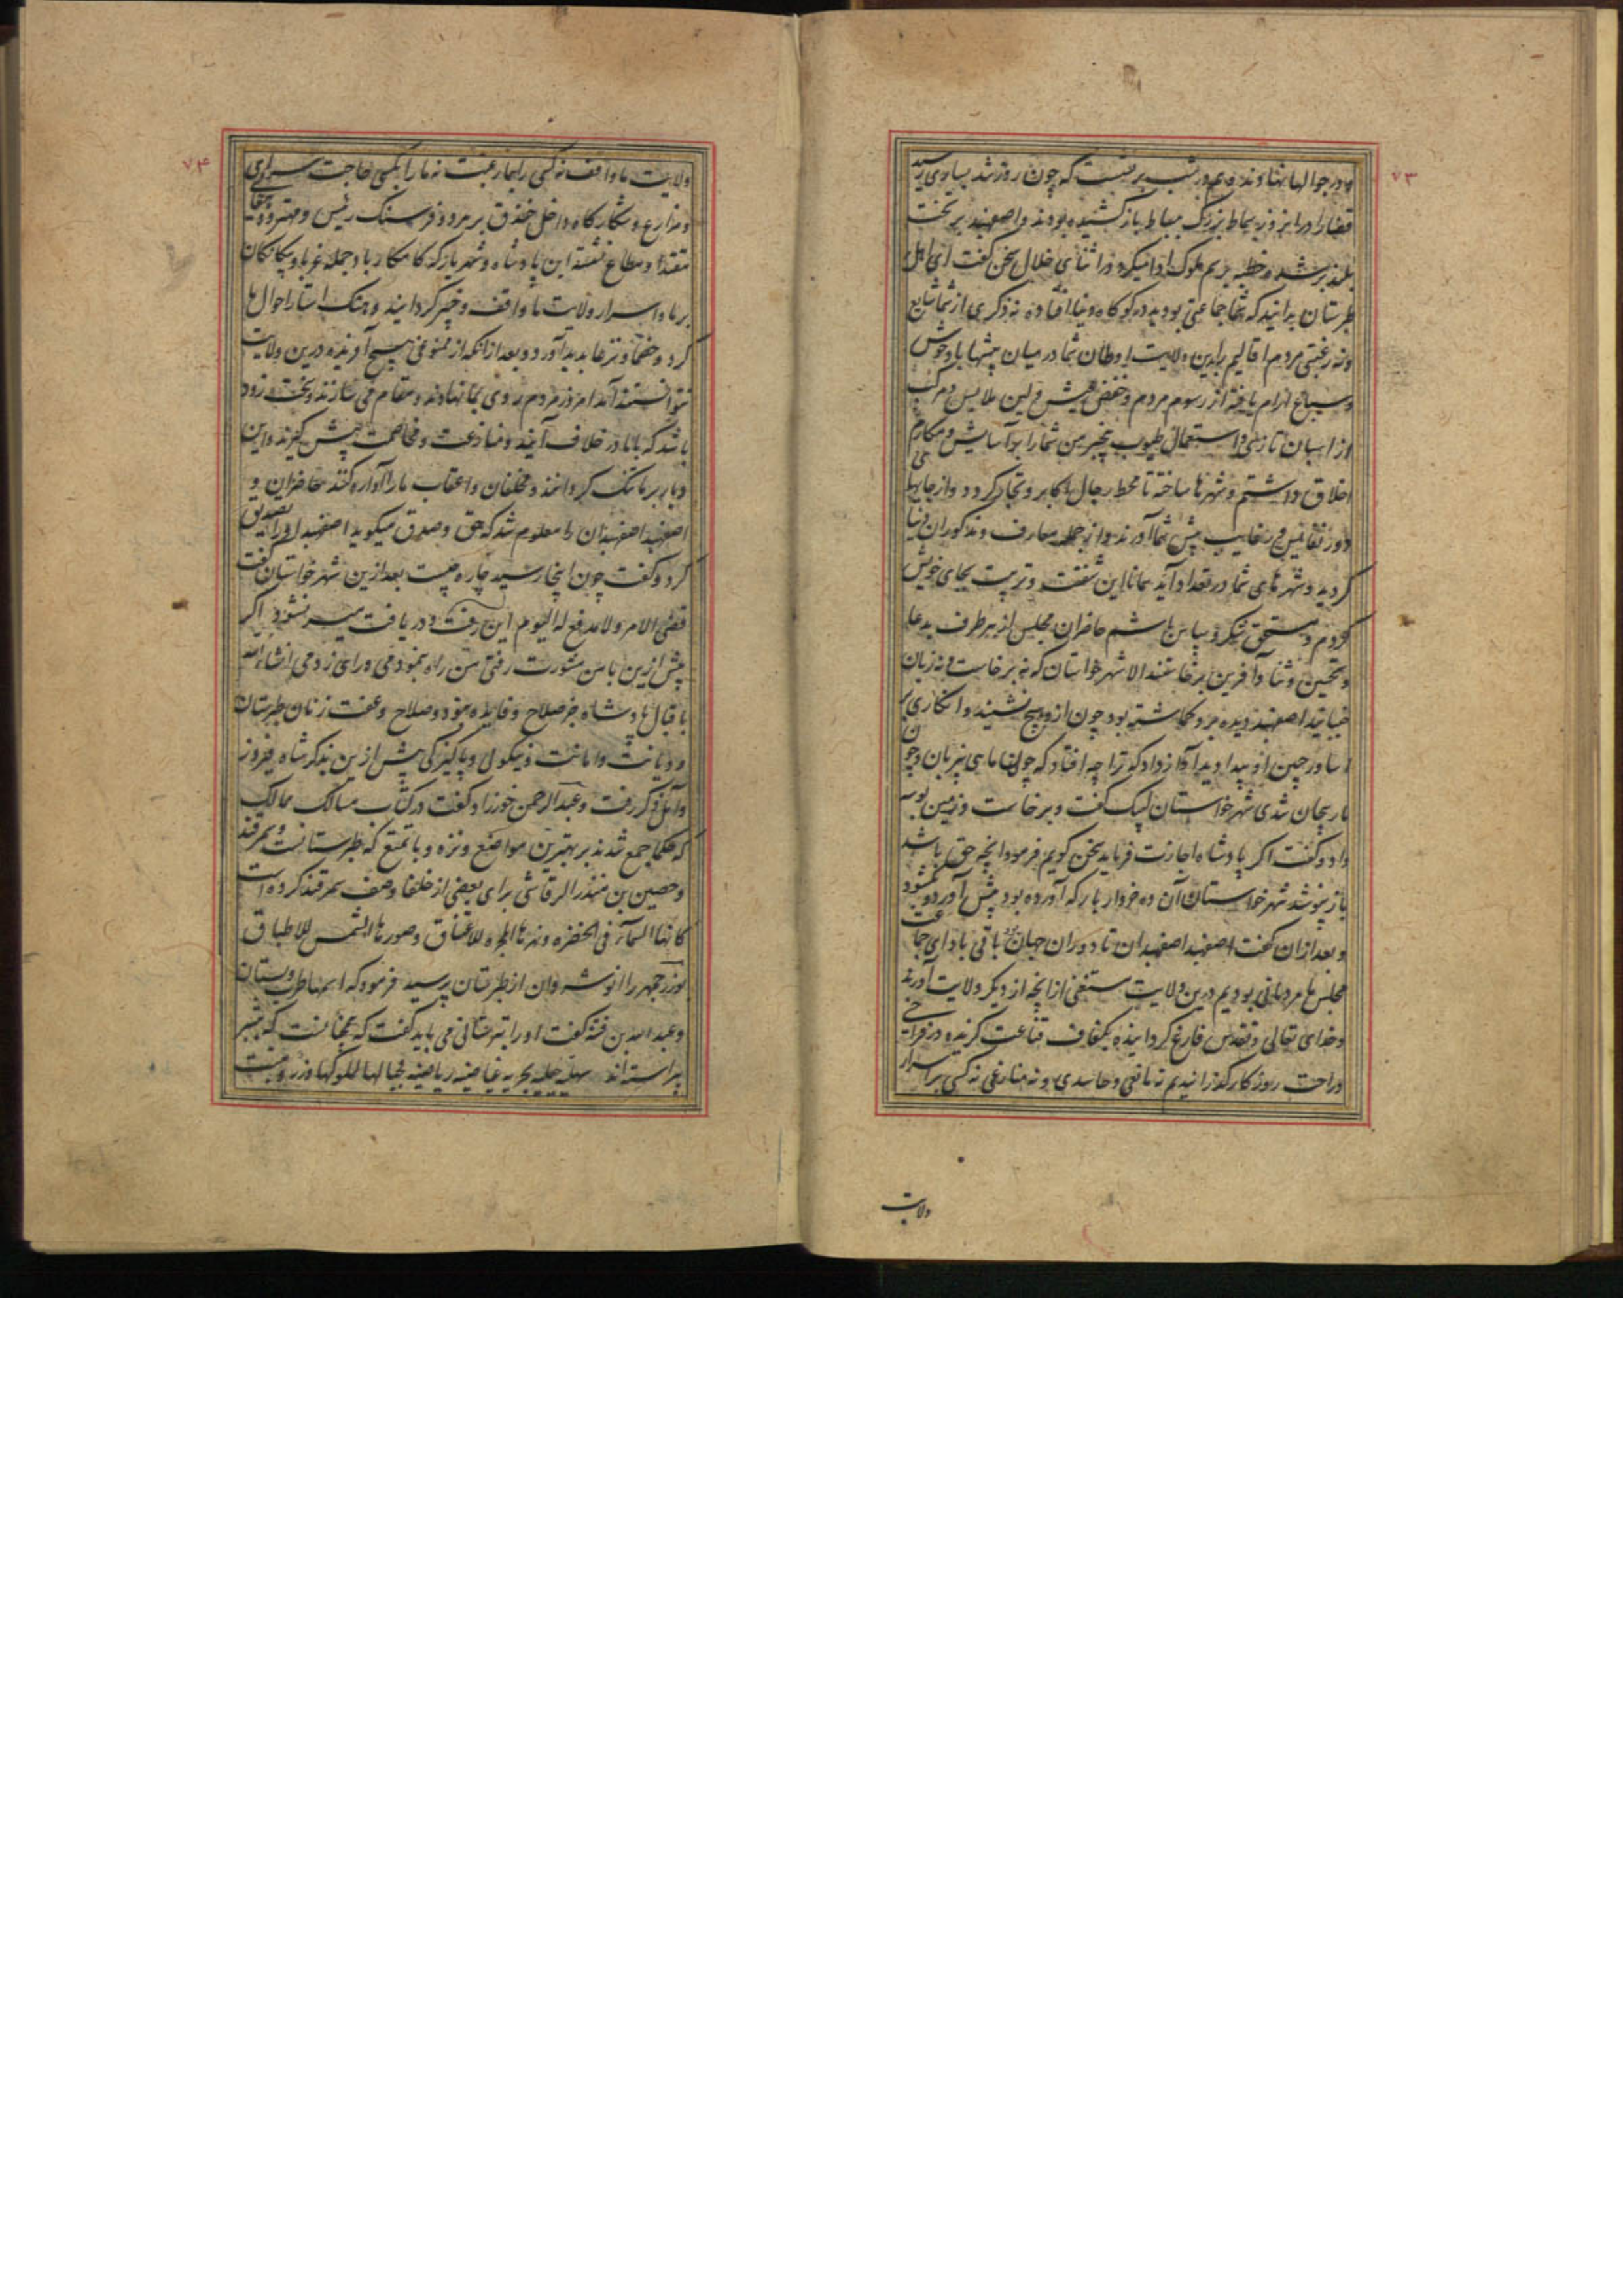 ۷۳
و در جوالها نهاوند و هم در شب برنشست که چون روز شد بساری رسید
قضا را در این روز سماط بزرگ بساط باز کشیده بودند و اصفهبد بر تخت
بلند بر شده خطبه برسم ملوک ادا میکرد و در اثنای خلال سخن گفت ای اهل
طبرستان بدانید که شما جماعتی بودید در کوکاه دنیا افتاده نه ذکری از شما شایع
و نه رغبتی مردم اقالیم را بدین ولایت اوطان شما در میان بیشها با وحوش
و سباع آرام یافته از رسوم مردم و خفض عیش و لین ملابس و مرکب
از اسبان تازی و استعمال طیوب بیخبر من شما را بر آسایش و مکارم
اخلاق داشتم و شهرها ساخته تا محط رحال اکابر و تجار گردد و از جایهای
دور نفایس و رغایب پیش شما آورند و از جمله معارف و مذکوران دنیا
گردید و شهرهای شما در تعداد آید همانا این شفقت و تربیت بجای خویش
کردم و مستحق شکر و سپاس باشم حاضران مجلس از هر طرف بدعا
و تحسین و ثنا و آفرین برخاستند الا شهرخواستان که نه برخاست و نه زبان
جنبانید اصفهبد دیده برو گماشته بود چون ازو هیچ نشنید و انکاری
اسا در جبین او پیدا دید آواز داد که ترا چه افتاد که چون ماهی بیزبان و چون
مار بیجان شدی شهرخواستان لبیک گفت و برخاست و زمین بوسه
داد و گفت اگر پادشاه اجازت فرماید سخن گویم فرمود آنچه حق باشد
باز نپوشد شهرخواستان آن ده خروار بار که آورده بود پیش آورد و بگشود
و بعد از آن گفت اصفهبد اصفهبدان تا دوران جهان باقی باد ای جماعت
مجلس ما مردمانی بودیم درین ولایت مستغنی از آنچه از دیگر ولایت آورند
و خدای تعالی و تقدس فارغ گردانیده بکفاف قناعت گزیده در فراخی
و راحت روزگار گذرانیدیم نه باغی و حاسدی و نه منازعی نه کسی بر اسرار
ولایت
۷۴
ولایت ما واقف نه کسی را بما رغبت نه ما را بکسی حاجت سرای
و مزارع و شکارگاه داخل خندق بر هر دو فرسنگ رئیس و مهتر و دهقان
مقتدا و مطاع نشسته این پادشاه و شهریار که کامکار باد جمله غربا و بیگانگان
بر ما و اسرار ولایت ما واقف و خبیر گردانید و هتک استار احوال ما
کرد و خصما و نزعا پدید آورد و بعد از آنکه از ممنوعی هیچ آفریده درین ولایت
نتوانستند آمد امروز مردم روی بما نهاوند و مقام می سازند و سخت زود
باشد که با ما در خلاف آیند و منازعت و مخاصمت پیش گیرند و این
دیار بر ما تنگ گردانند و مخلفان و اعقاب ما را آواره کنند حاضران و
اصفهبد اصفهبدان را معلوم شد که حق و صدق میگوید اصفهبد او را تصدیق
کرد و گفت چون اینجا رسید چاره چیست بعد ازین شهرخواستان گفت
قضی الامر و لا مدفع له الیوم این رفت و دریافت میسر نشود اگر
پیش ازین با من مشورت رفتی من راه نمودمی و رای زدمی انشاء الله
باقبال پادشاه جز صلاح و فایده نبود و صلاح و عفت زنان طبرستان
و دیانت و امانت و نیکویی و پاکیزگی پیش ازین بذکر شاه فیروز
و آمل ذکر رفت و عبدالرحمن خورزاد گفت در کتاب مسالک ممالک
که حکما جمع شدند بر بهترین مواضع و نزه و با تمتع که طبرستانست و سمرقند
و حصین بن منذر الرقاشی برای بعضی از خلفا وصف سمرقند کرده است
کانها السمآء فی الخضره و نهرها المجره للاعتناق و صورها الشمس للاطباق
بوزرجمهر را انوشروان از طبرستان پرسید فرمود که اسمها طرب و بستان
و عبدالله بن قتیبه گفت او را تبرستانی می باید گفت که بمعنا آنست که بتبر
پیراسته اند سهلیه جبلیه بحریه غیاضیه ریاضیه جبالها للملوکها